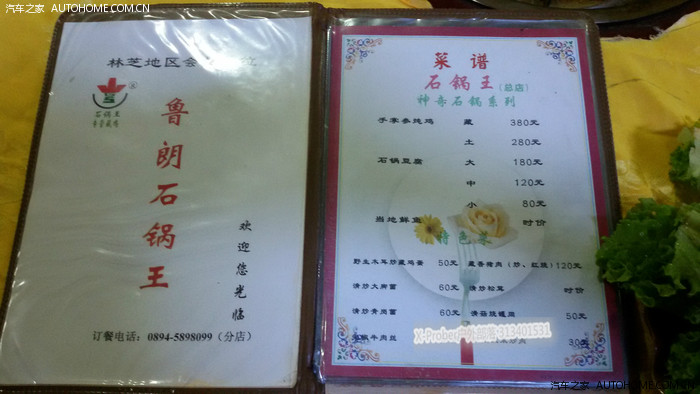 汽车之家 AUTOHOME.COM.CN
林芝地区会
石锅王
鲁朗石锅王
欢迎您光临
订餐电话：0894-5898099（分店）
菜谱
石锅王（总店）
神奇石锅系列
手掌参炖鸡 藏 380元
土 280元
石锅豆腐 大 180元
中 120元
小 80元
当地鲜鱼 时价
特色菜
野生木耳炒藏鸡蛋 50元 藏香猪肉（炒、红烧）120元
清炒大脚菌 60元 清炒松茸 时价
清炒青岗菌 60元 50元
牛肉丝 30元
X-Prober 313401531
汽车之家 AUTOHOME.COM.CN